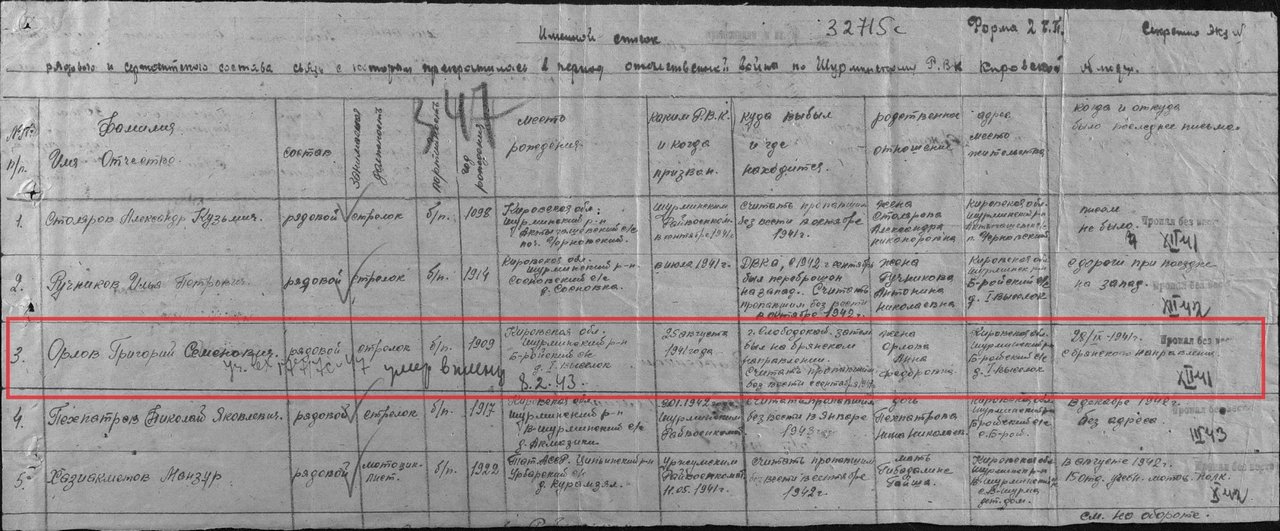 Именной список
32715с
Форма 2 Б.П.
Секретно Экз №
рядового и сержантского состава связь с которым прекратилась в период отечественной война по Шурминскому Р.В.К Кировской
547
№№ п/п.
Фамилия
Имя Отчество.
состав
занимаемая должность
партийность
год рождения
место
рождения.
каким Р.В.К.
и когда
призван.
куда выбыл
и где
находится.
родственные
отношение
адрес
место
жительства
когда и откуда
было последнее письмо.
1. Столяров Александр Кузьмич. рядовой стрелок б/п. 1898
Кировская обл.
Шурминский р-н
Шурминским
Райвоенком.
в октябре 1941г.
считать пропавшим
без вести в октябре
1941г.
жена
Столярова
Александра
Никоноровна
Кировская обл.
Шурминский р-н
писем
не было.
Пропал без вести
XII 41
2. Ручников Илья Петрович. рядовой стрелок б/п. 1914
Кировская обл.
Шурминский р-н.
Сосновский с/с
д. Сосновка
в июле 1941г.
ДВКА, в 1942 г сентябре
был переброшен
на запад. Считать
пропавшим без вести
в октябре 1942г.
жена
Ручникова
Антонина
Николаевна
Кировская обл.
Шурминский р-н
Б-ройский с/с
д. I Выселок
с дороги при поездке
на запад.
Пропал без вести
XII 42
3. Орлов Григорий Семенович. рядовой стрелок б/п. 1909
уч. 17717с-47 умер в плену
8.2.43.
Кировская обл.
Шурминский р-н
Б-ройский с/с
д. I Выселок
25 августа
1941 года
г. Слободской. затем
был на брянском
направлении.
Считать пропавшим
без вести с сентября 1941г.
жена
Орлова
Анна
Федоровна
Кировская обл.
Шурминский р-н
Б-ройский с/с
д. I Выселок
28/IX-1941г.
с брянского направления
Пропал без вести
XII 41
4. Пехпатров Николай Яковлевич. рядовой стрелок б/п. 1917
Кировская обл.
Шурминский р-н
В-Шурминский с/с
1942г.
Шурминским
Райвоенкомат
считать пропавшим
без вести в январе
1943г.
дочь
Пехпатрова
Нина Николаев.
Кировская обл.
Шурминский р-н
Б-ройский с/с
с. Б-рой.
в декабре 1942г.
без адреса
Пропал без вести
III 43
5. Хазиахметов Манзур рядовой мотоциклист. б/п. 1922
Тат. АССР. Ципьинский р-н
с/с
Уржумским
Райвоенкомат
11.05.1941г.
считать пропавшим
без вести в сентябре
1942г.
мать
Кировская обл.
Шурминский р-н
В-Шурминский с/с
с. В-Шурма
дет. дом.
в августе 1942г.
X 42
см. на обороте.